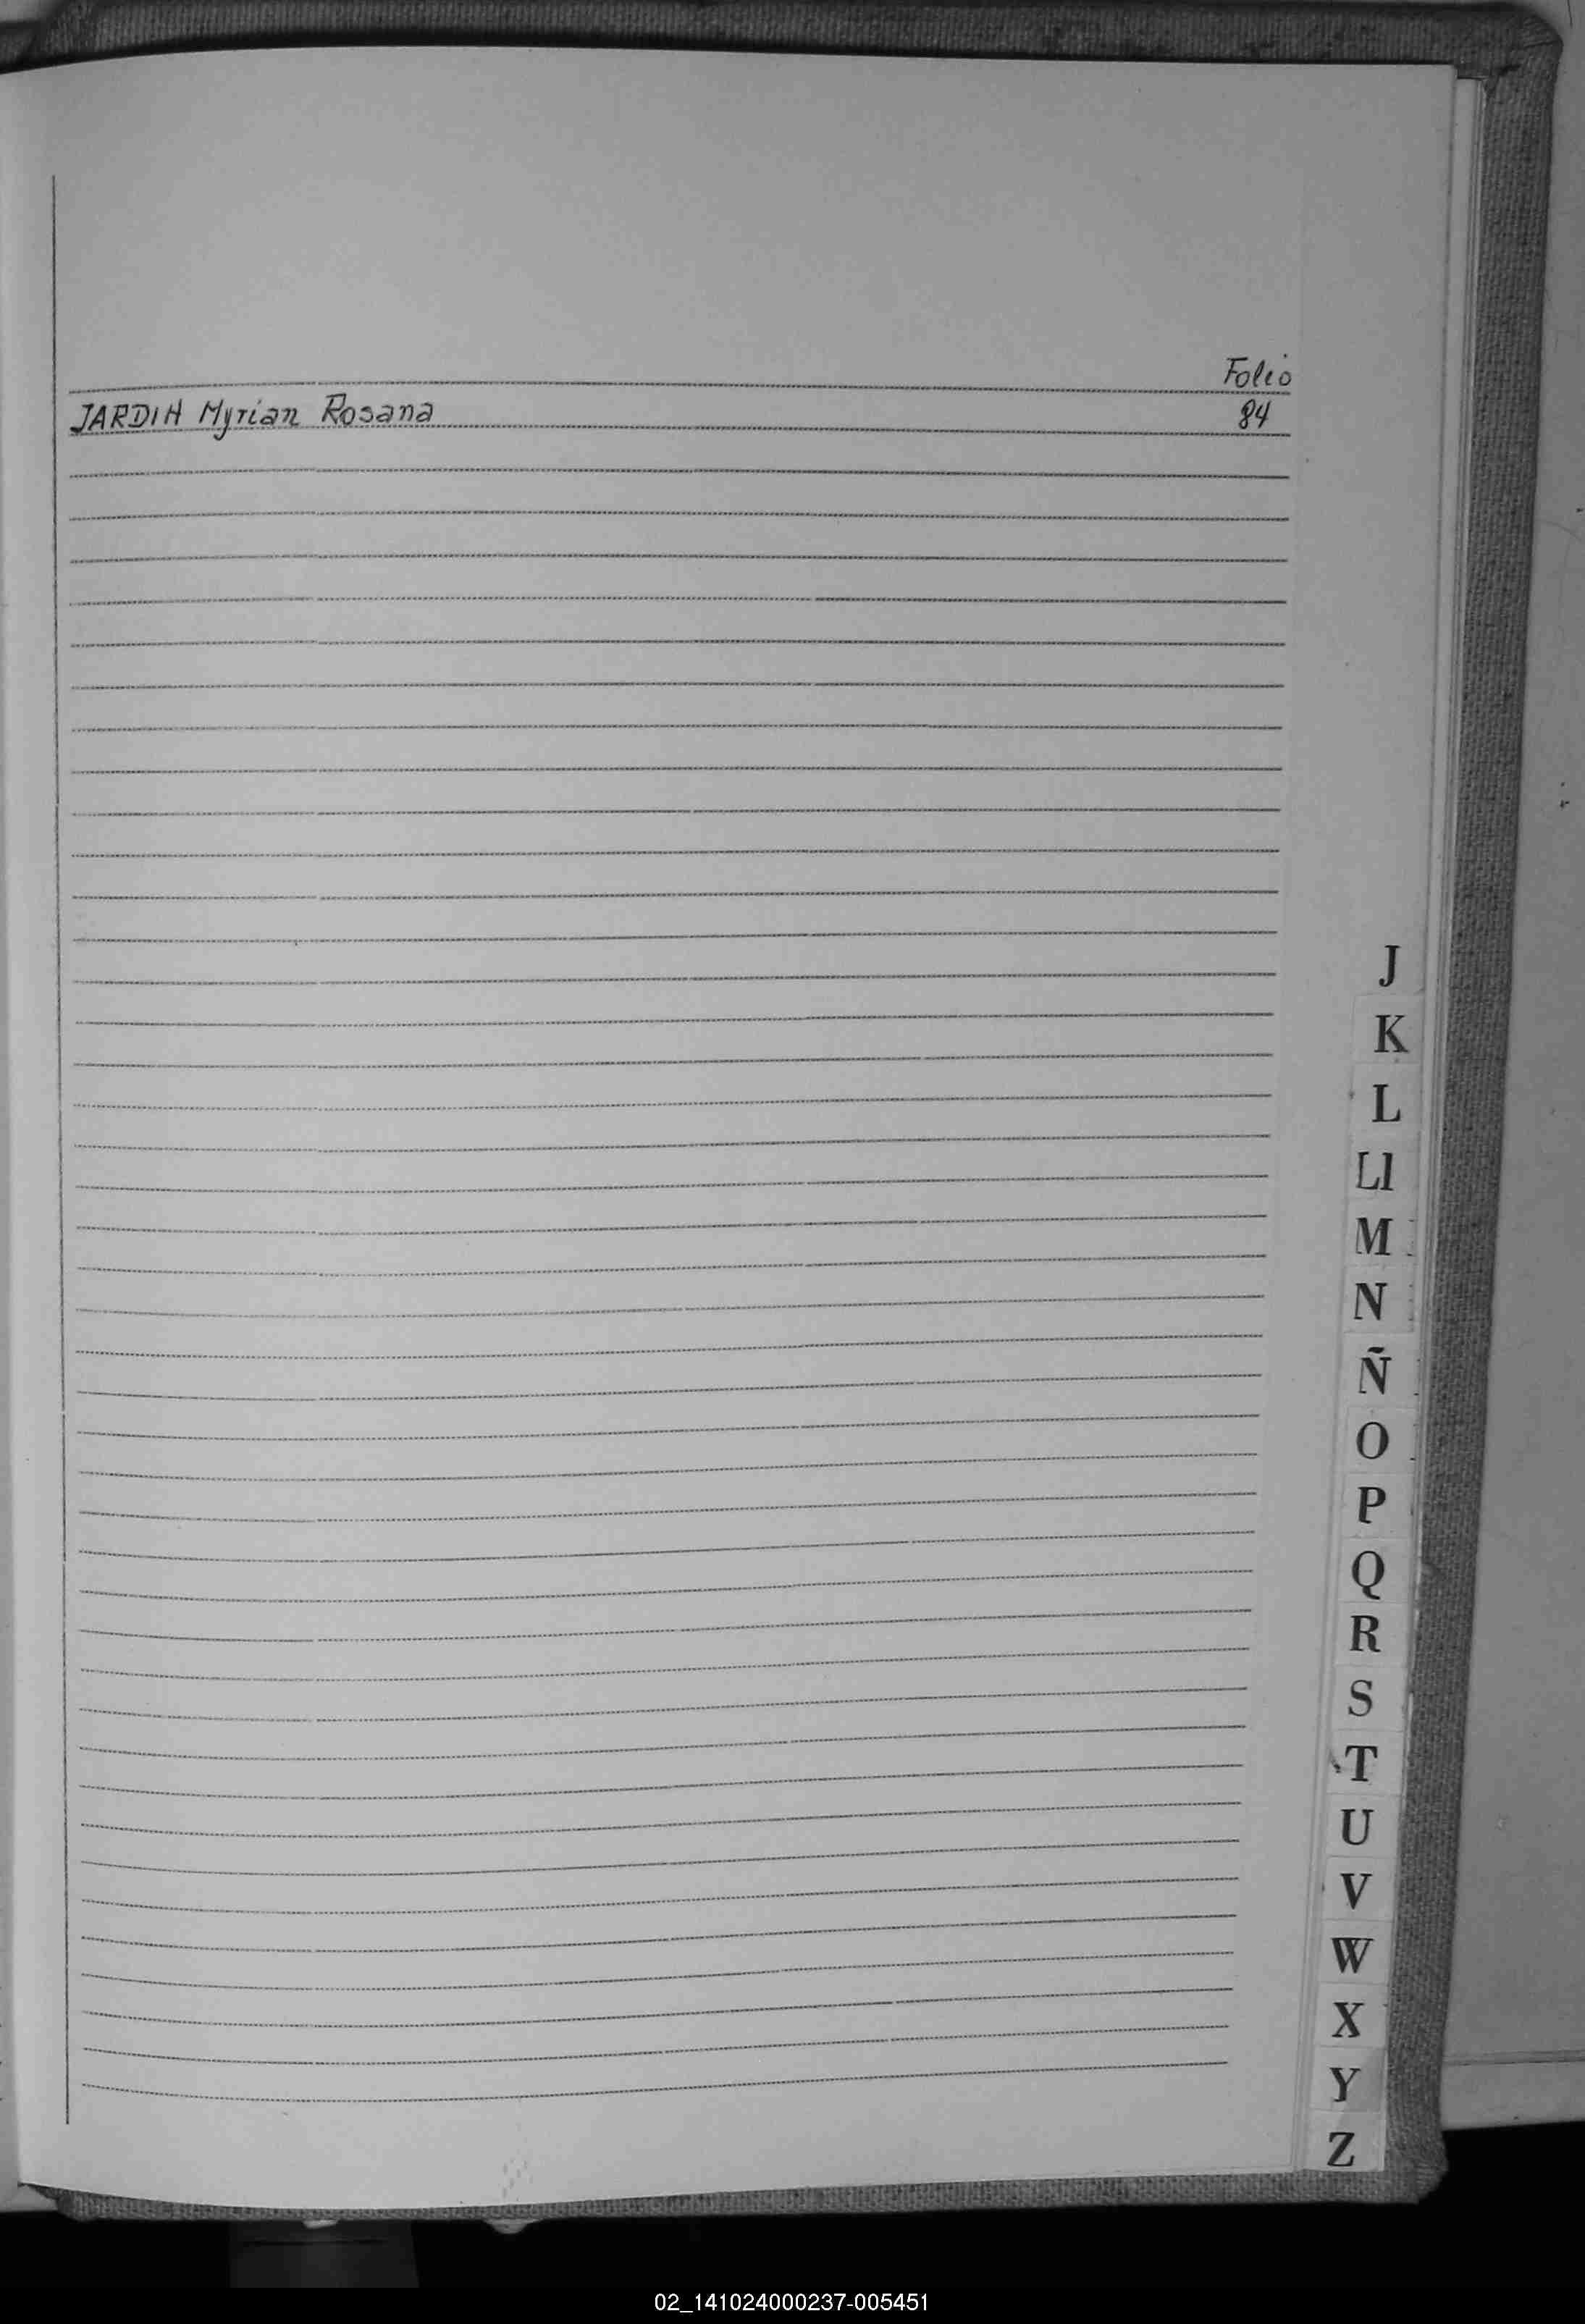 Folio
JARDIN Myrian Rosana 84
J
K
L
Ll
M
N
Ñ
O
P
Q
R
S
T
U
V
W
X
Y
Z
02_141024000237-005451